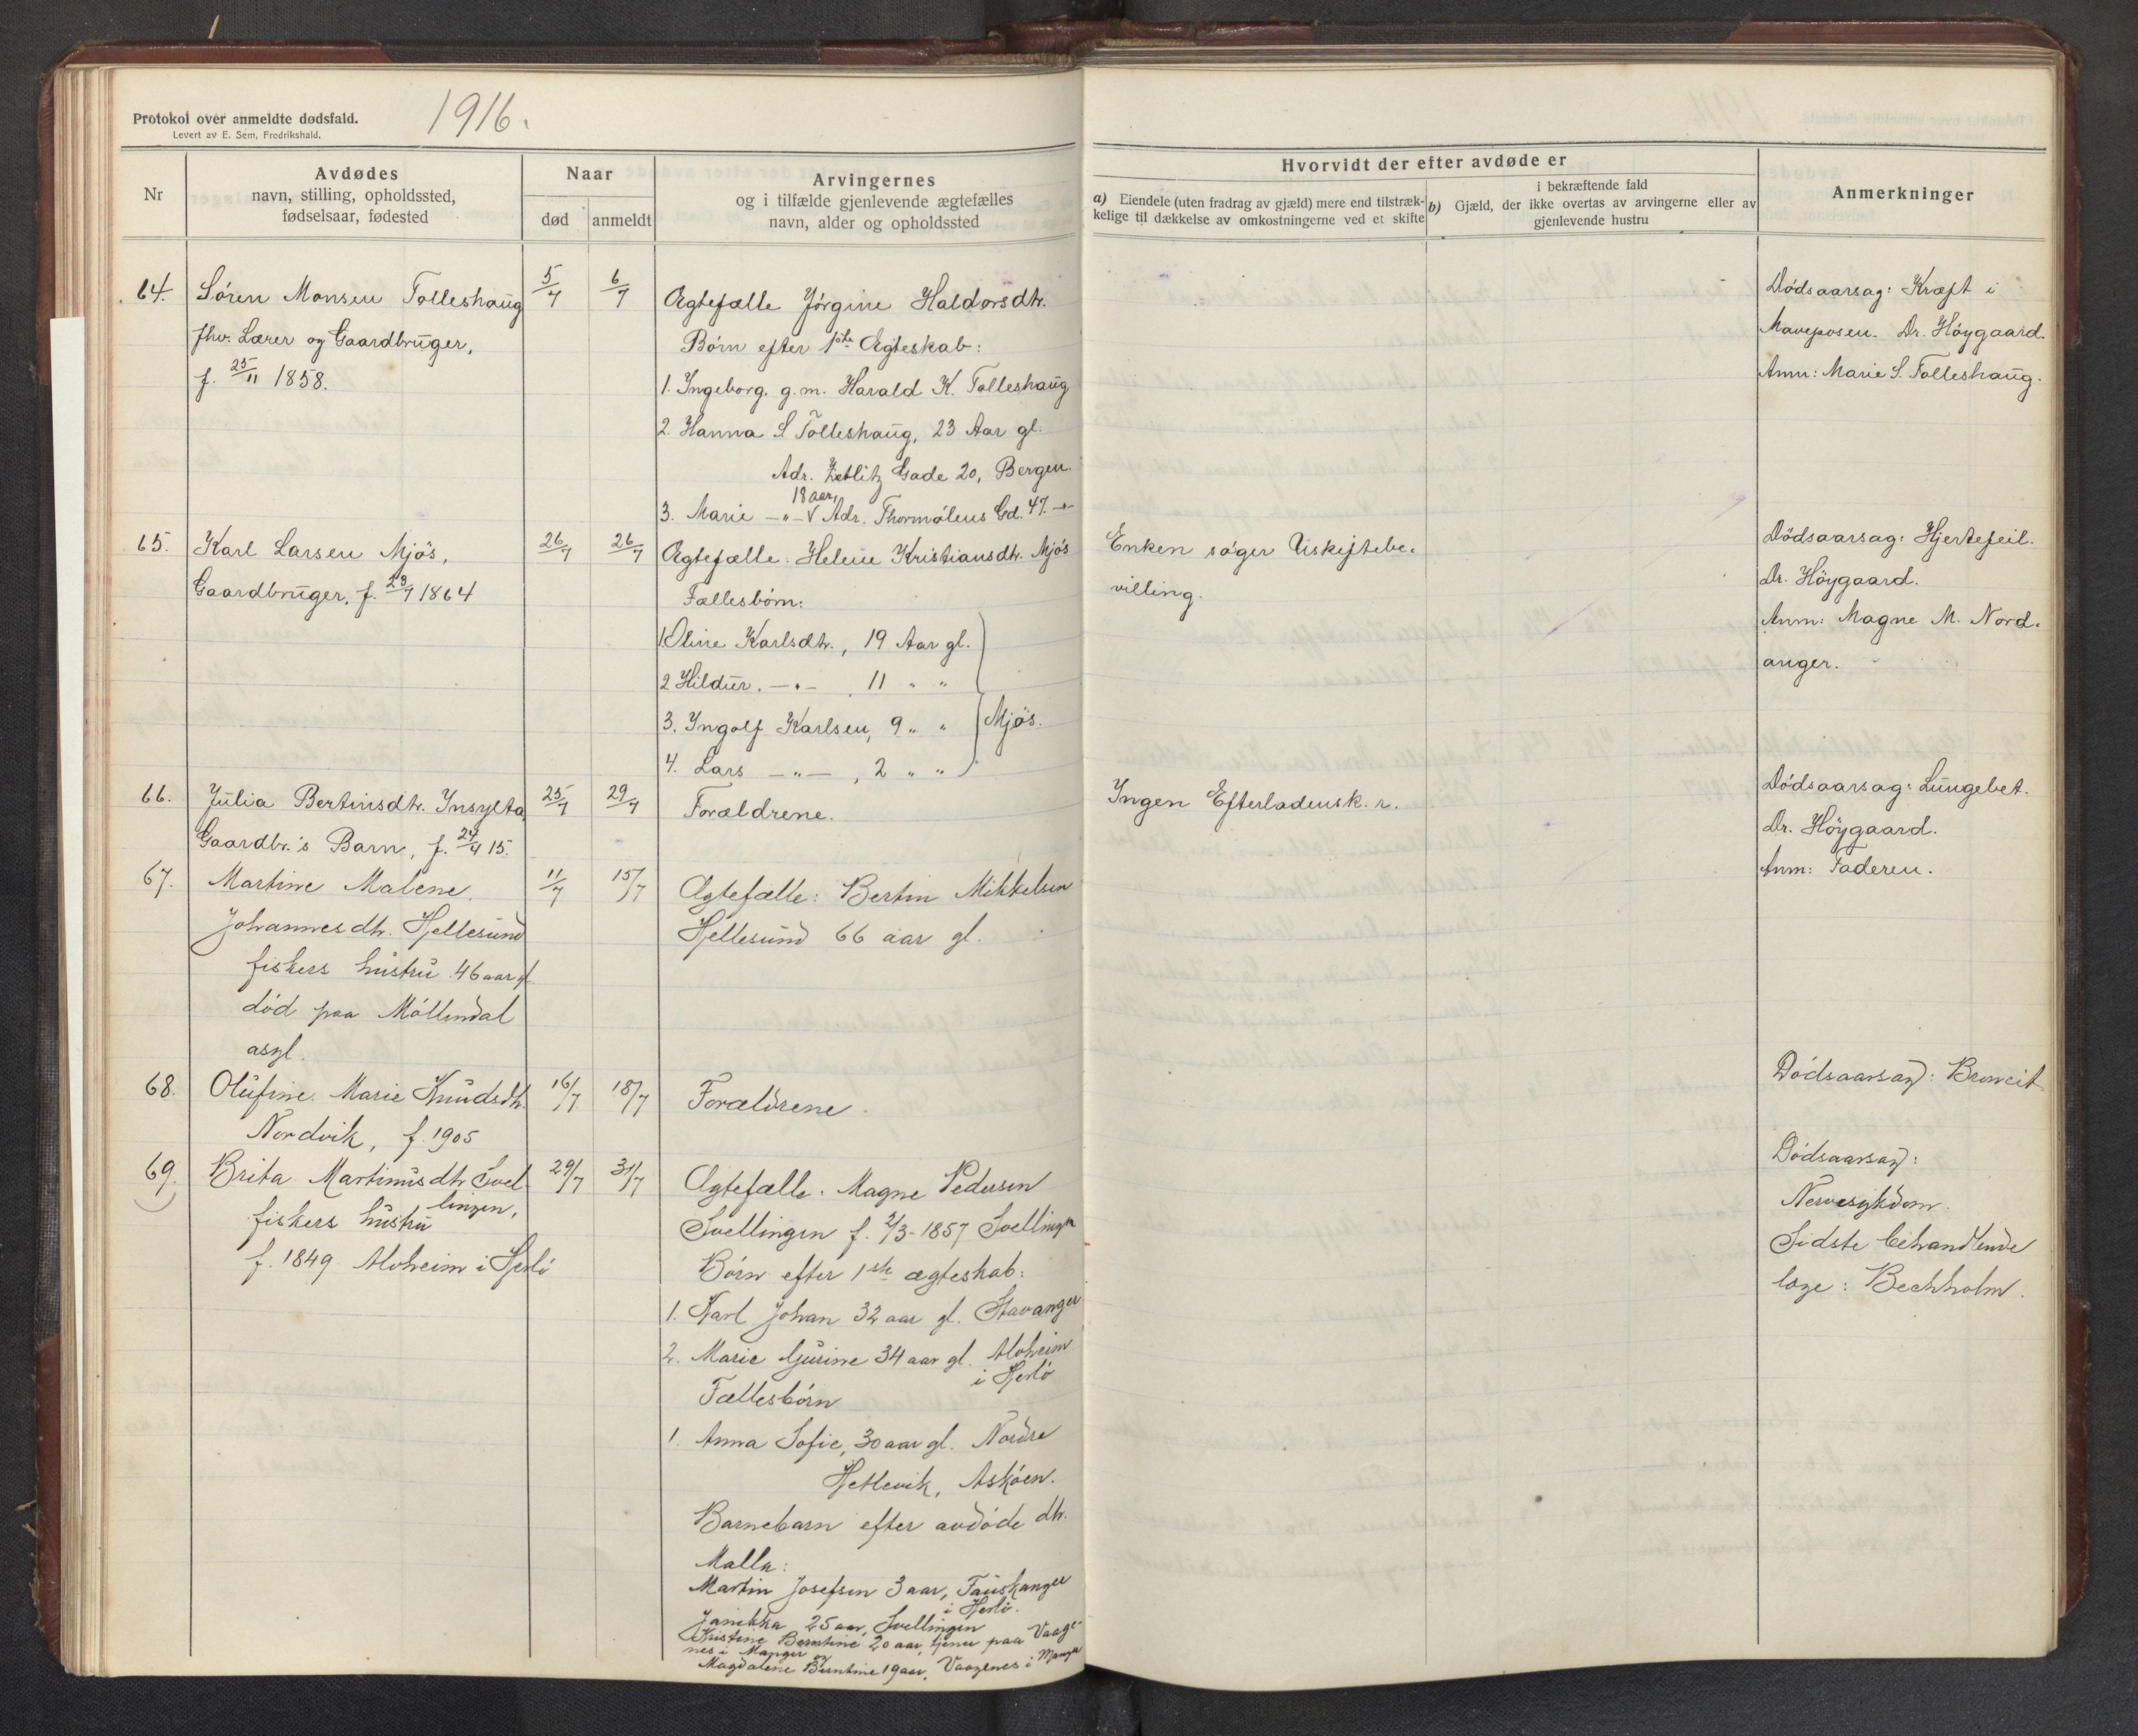 Protokol over anmeldte dødsfald.
Levert av E. Sem, Fredrikshald.
1916.
Nr
Avdødes
navn, stilling, opholdssted,
fødselsaar, fødested
Naar
død
anmeldt
Arvingernes
og i tilfælde gjenlevende ægtefælles
navn, alder og opholdssted
Hvorvidt der efter avdøde er
a) Eiendele (uten fradrag av gjæld) mere end tilstræk-
kelige til dækkelse av omkostningerne ved et skifte
i bekræftende fald
b) Gjæld, der ikke overtas av arvingerne eller av
gjenlevende hustru
Anmerkninger
64. Søren Monsen Tolleshaug 5/7 6/7
fhv. Lærer og Gaardbruger,
f. 25/11 1858.
Ægtefælle Jørgine Haldorsdtr.
Børn efter 1ste Ægteskab:
1. Ingeborg. g.m. Harald K. Tolleshaug
2. Hanna S Tolleshaug, 23 Aar gl.
Adr. Zetlitz Gade 20, Bergen.
18 aar,
3. Marie -"- Adr. Thormølens Gd. 47. -"-
Dødsaarsag: Kræft i
Maveposen. Dr. Høygaard.
Anm: Marie S. Tolleshaug.
65. Karl Larsen Mjøs, 26/7 26/7
Gaardbruger, f. 23/7 1864
Ægtefælle: Helene Kristiansdtr. Mjøs
Fællesbørn:
1. Oline Karlsdtr., 19 Aar gl.
2 Hildur. -"- , 11 " "
3. Ingolf Karlsen, 9 " " Mjøs.
4. Lars -"- , 2 " "
Enken søger Uskiftebe-
villing.
Dødsaarsag: Hjertefeil.
Dr. Høygaard.
Anm: Magne M. Nord-
anger.
66. Julia Bertinsdtr. Insylta, 25/7 29/7
Gaardbr.'s Barn, f. 24/4 15.
Forældrene.
Ingen Efterladensk. r.
Dødsaarsag: Lungebet.
Dr. Høygaard.
Anm: Faderen.
67. Martine Malene 11/7 15/7
Johannesdtr. Hjellesund
fiskers hustru 46 aar gl.
død paa Møllendal
asyl.
Ægtefælle: Bertin Mikkelsen
Hjellesund 66 aar gl.
68. Olufine Marie Knudsdtr. 16/7 18/7
Nordvik, f. 1905
Forældrene.
Dødsaarsag: Broncit
69. Brita Martinusdtr Svel- 29/7 31/7
lingen,
fiskers hustru
f. 1849 Alvheim i Herlø
Ægtefælle: Magne Pedersen
Svellingen f. 2/3-1857 Svellingen
Børn efter 1ste ægteskab:
1. Karl Johan 32 aar gl. Stavanger
2. Marie Gurine 34 aar gl. Alvheim
i Herlø
Fællesbørn
1. Anna Sofie, 30 aar gl. Nordre
Hetlevik, Askøen.
Barnebarn efter avdøde dtr.
Malla:
Martin Josefsen 3 aar, Fauskanger
i Herlø.
Janikka 25 aar, Svellingen
Kristine Berntine 20 aar, tjener paa Vaage-
nes i Manger og
Magdalene Berntine 19 aar, Vaagenes i Manger
Dødsaarsag:
Nervesykdom.
Sidste behandlende
læge: Bechholm.